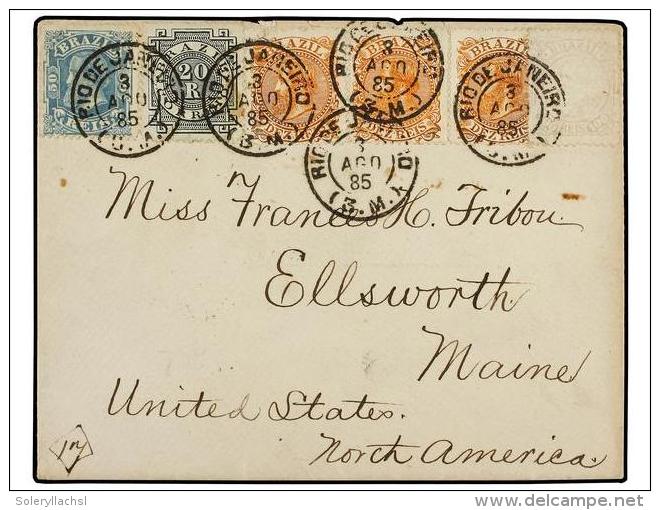 50 BRAZIL REIS
BRAZIL 20
BRAZIL DEZ REIS
BRAZIL DEZ REIS
BRAZIL DEZ REIS
RIO DE JANEIRO 3 AGO 85
RIO DE JANEIRO 3 AGO 85 (3.M.)
RIO DE JANEIRO 3 AGO 85 (3.M.)
RIO DE JANEIRO 3 AGO 85
3 AGO 85 (3.M.)
Miss Frances H. Tribou.
Ellsworth
Maine
United States.
North America.
Soleryllach sl
delcampe.net